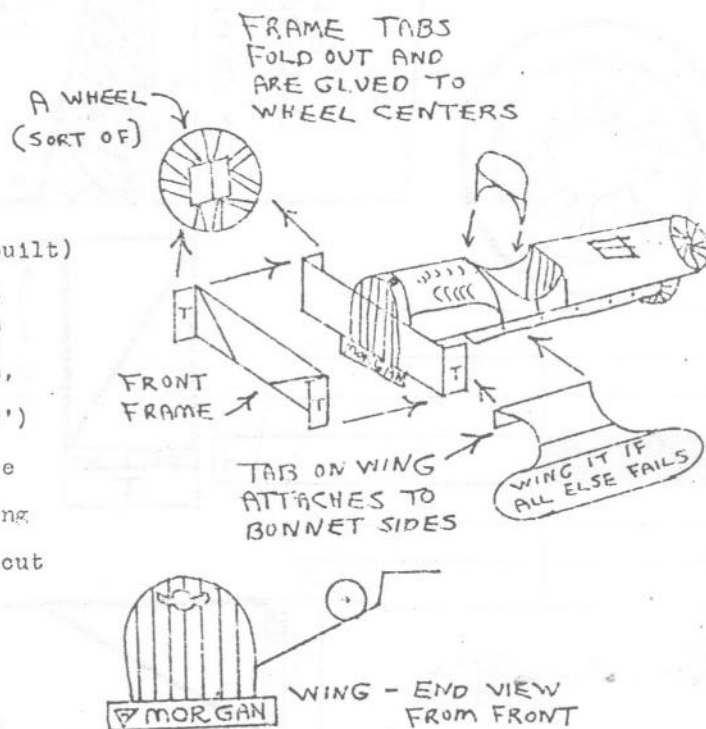 FRAME TABS
FOLD OUT AND
ARE GLUED TO
WHEEL CENTERS
A WHEEL
(SORT OF)
uilt)
,
')
e
ng
cut
T
T
T
MORGAN
FRONT
FRAME
TAB ON WING
ATTACHES TO
BONNET SIDES
WING IT IF
ALL ELSE FAILS
MORGAN
WING - END VIEW
FROM FRONT